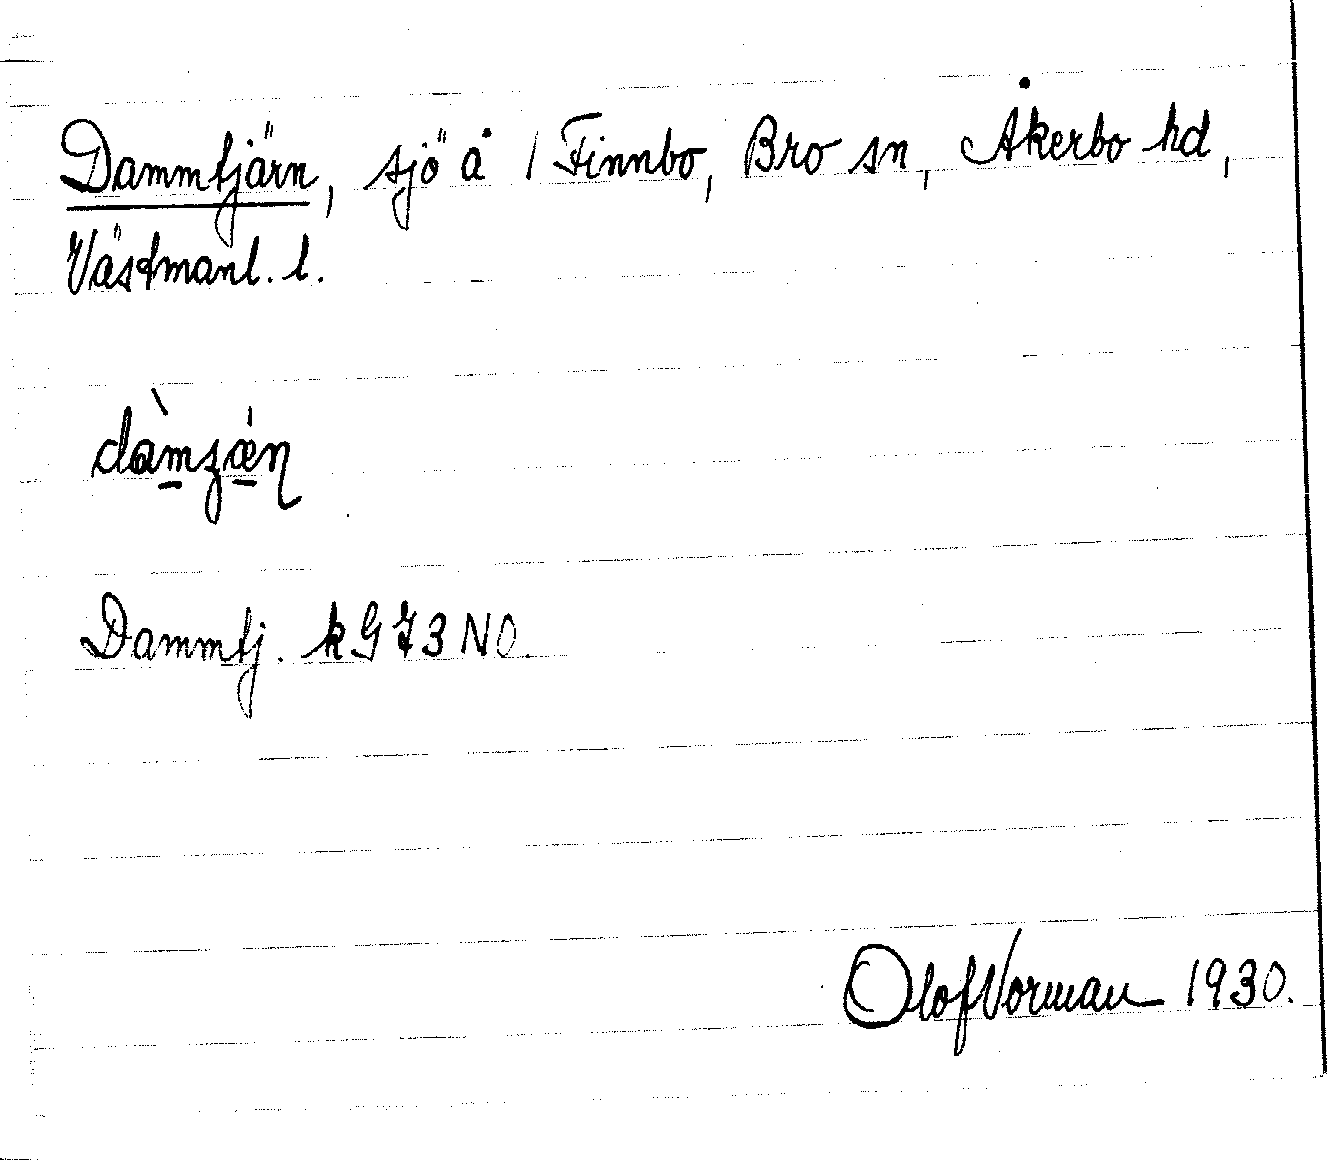 Dammtjärn, sjö å 1 Finnbo, Bro sn, Åkerbo hd,
Västmanl. l.
dàmʒǽn
Dammtj. kG73NO.
Olof Norman 1930.